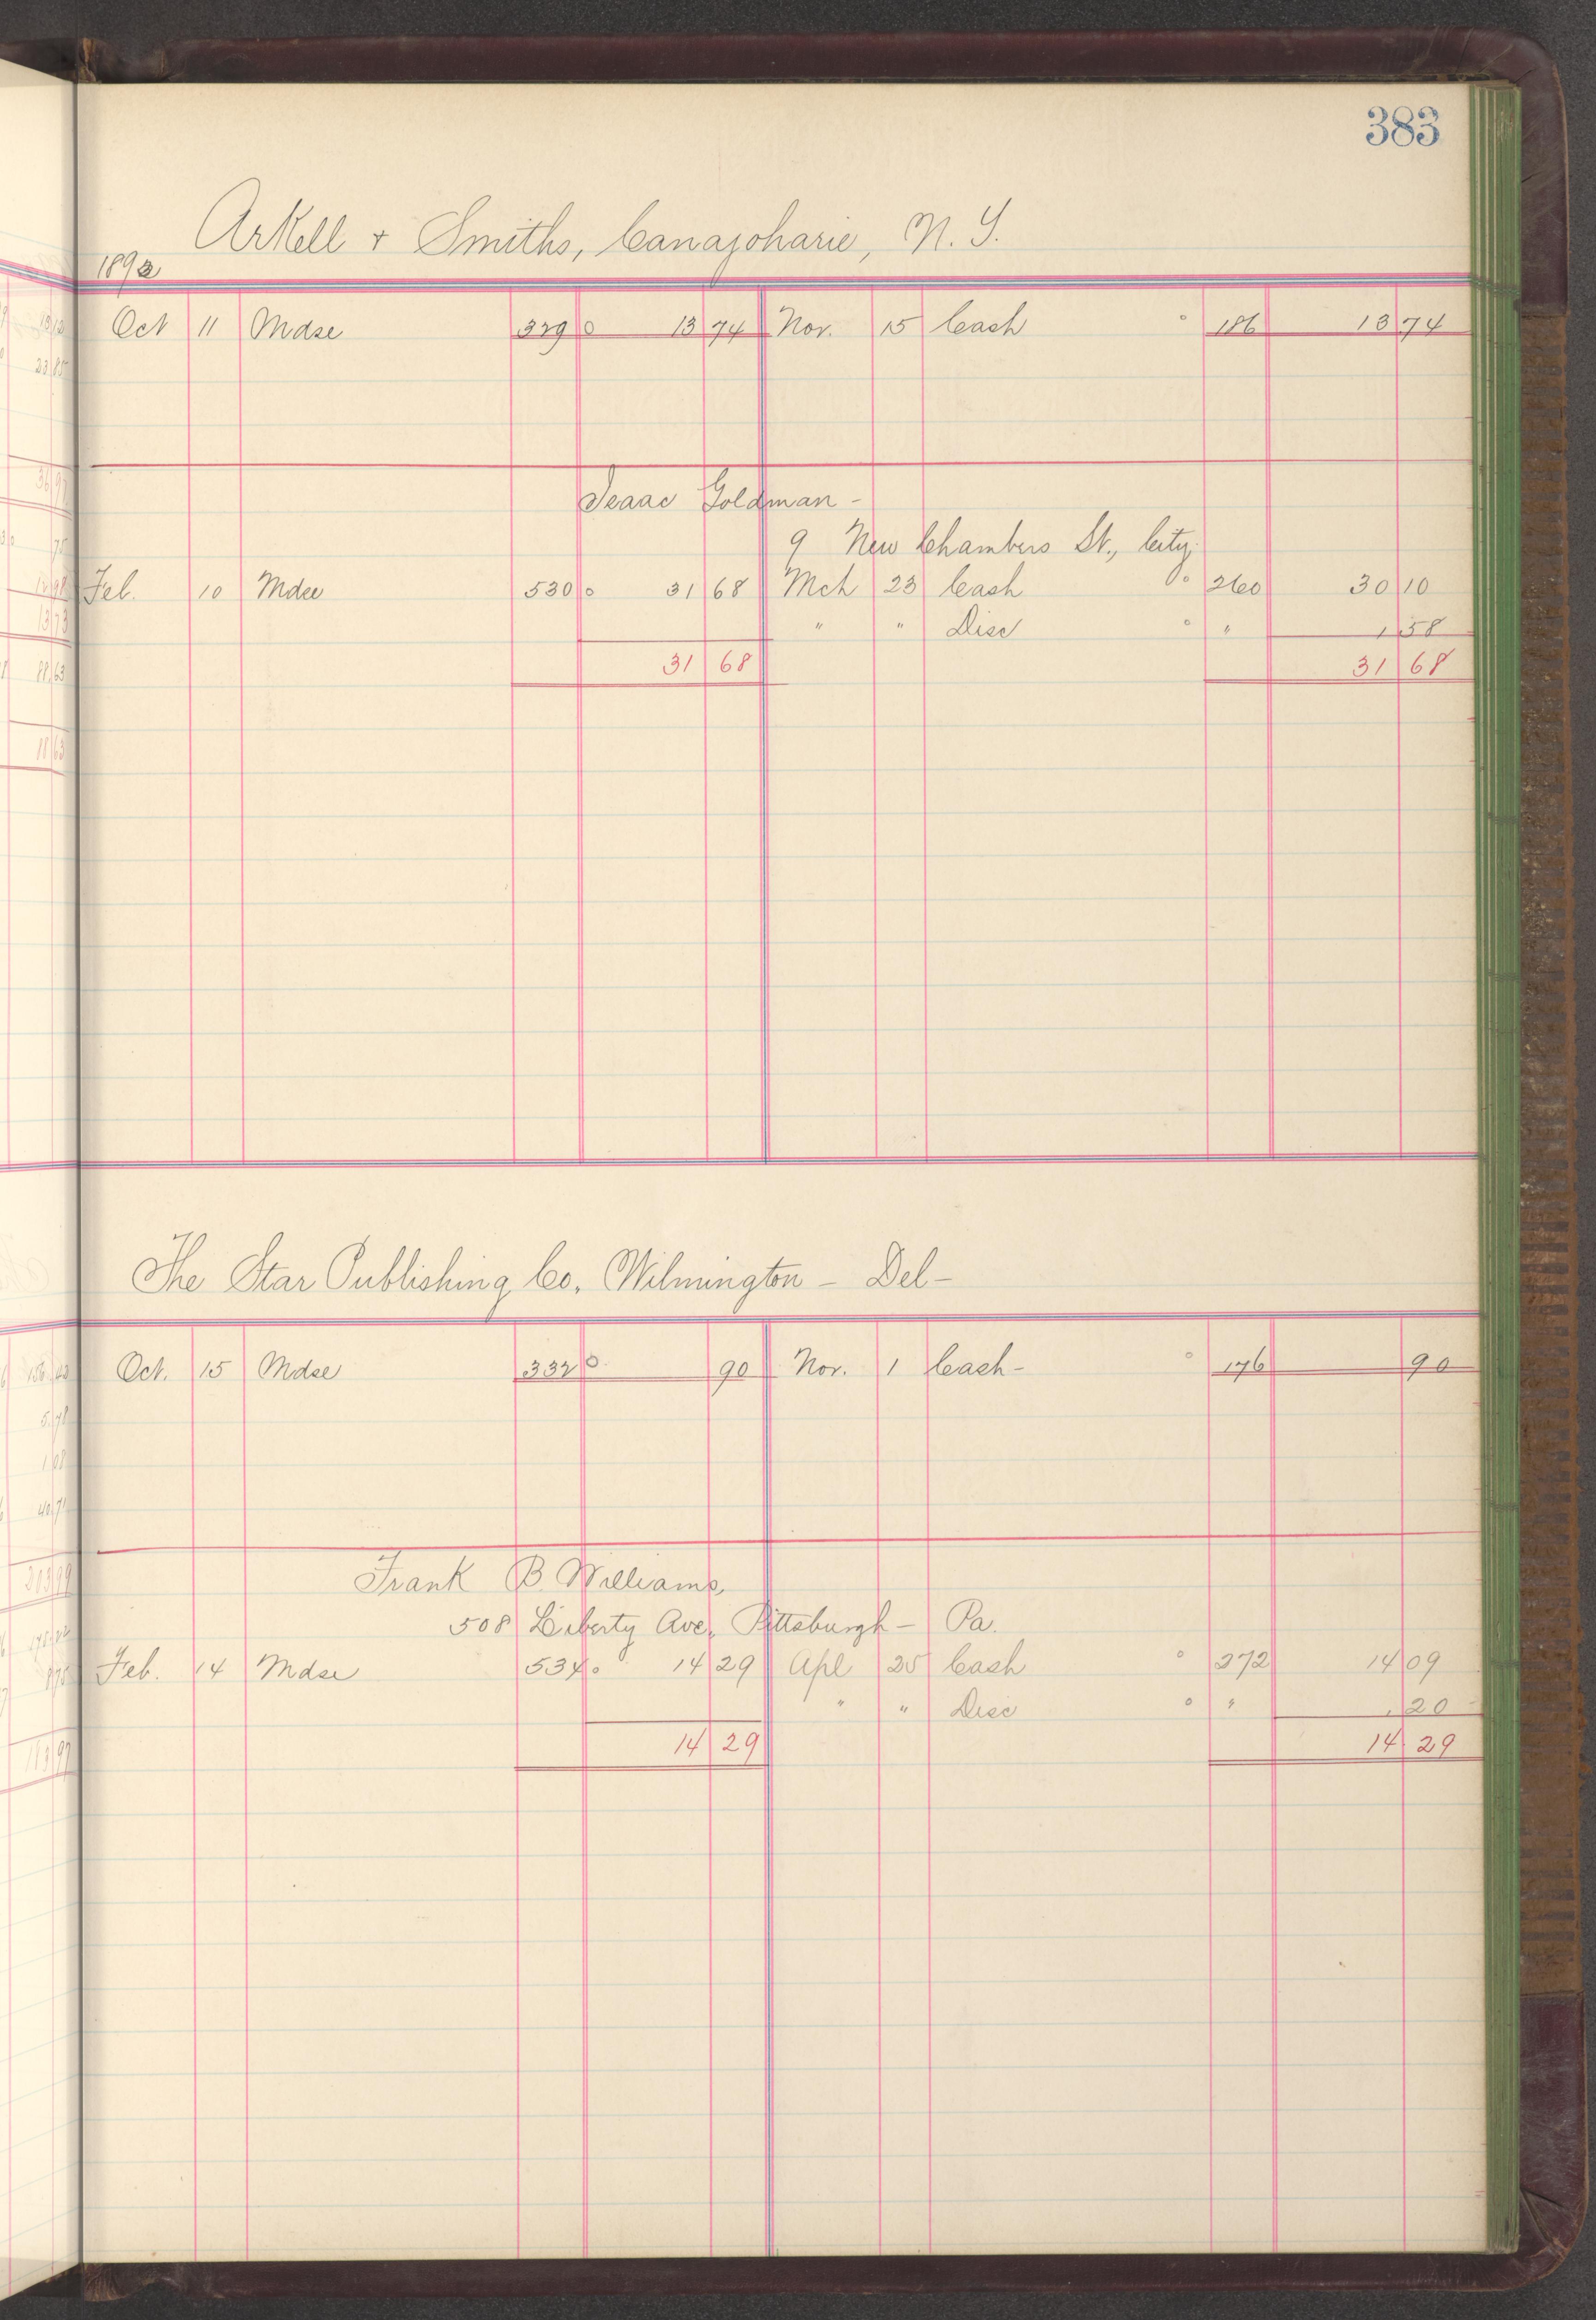 383
Arkell + Smiths, Canajoharie, N. Y.
1892
Oct 11 Mdse 329 13 74 Nov. 15 Cash 186 13 74
Isaac Goldman -
9 New Chambers St., City.
Feb. 10 Mdse 530 31 68 Mch 23 Cash 260 30 10
" " Disc " 1 58
31 68 31 68
The Star Publishing Co. Wilmington - Del -
Oct. 15 Mdse 332 90 Nov. 1 Cash - 176 90
Frank B. Williams,
508 Liberty Ave, Pittsburgh - Pa.
Feb. 14 Mdse 534 14 29 Apl 25 Cash 272 14 09
" " Disc " .20
14 29 14 29